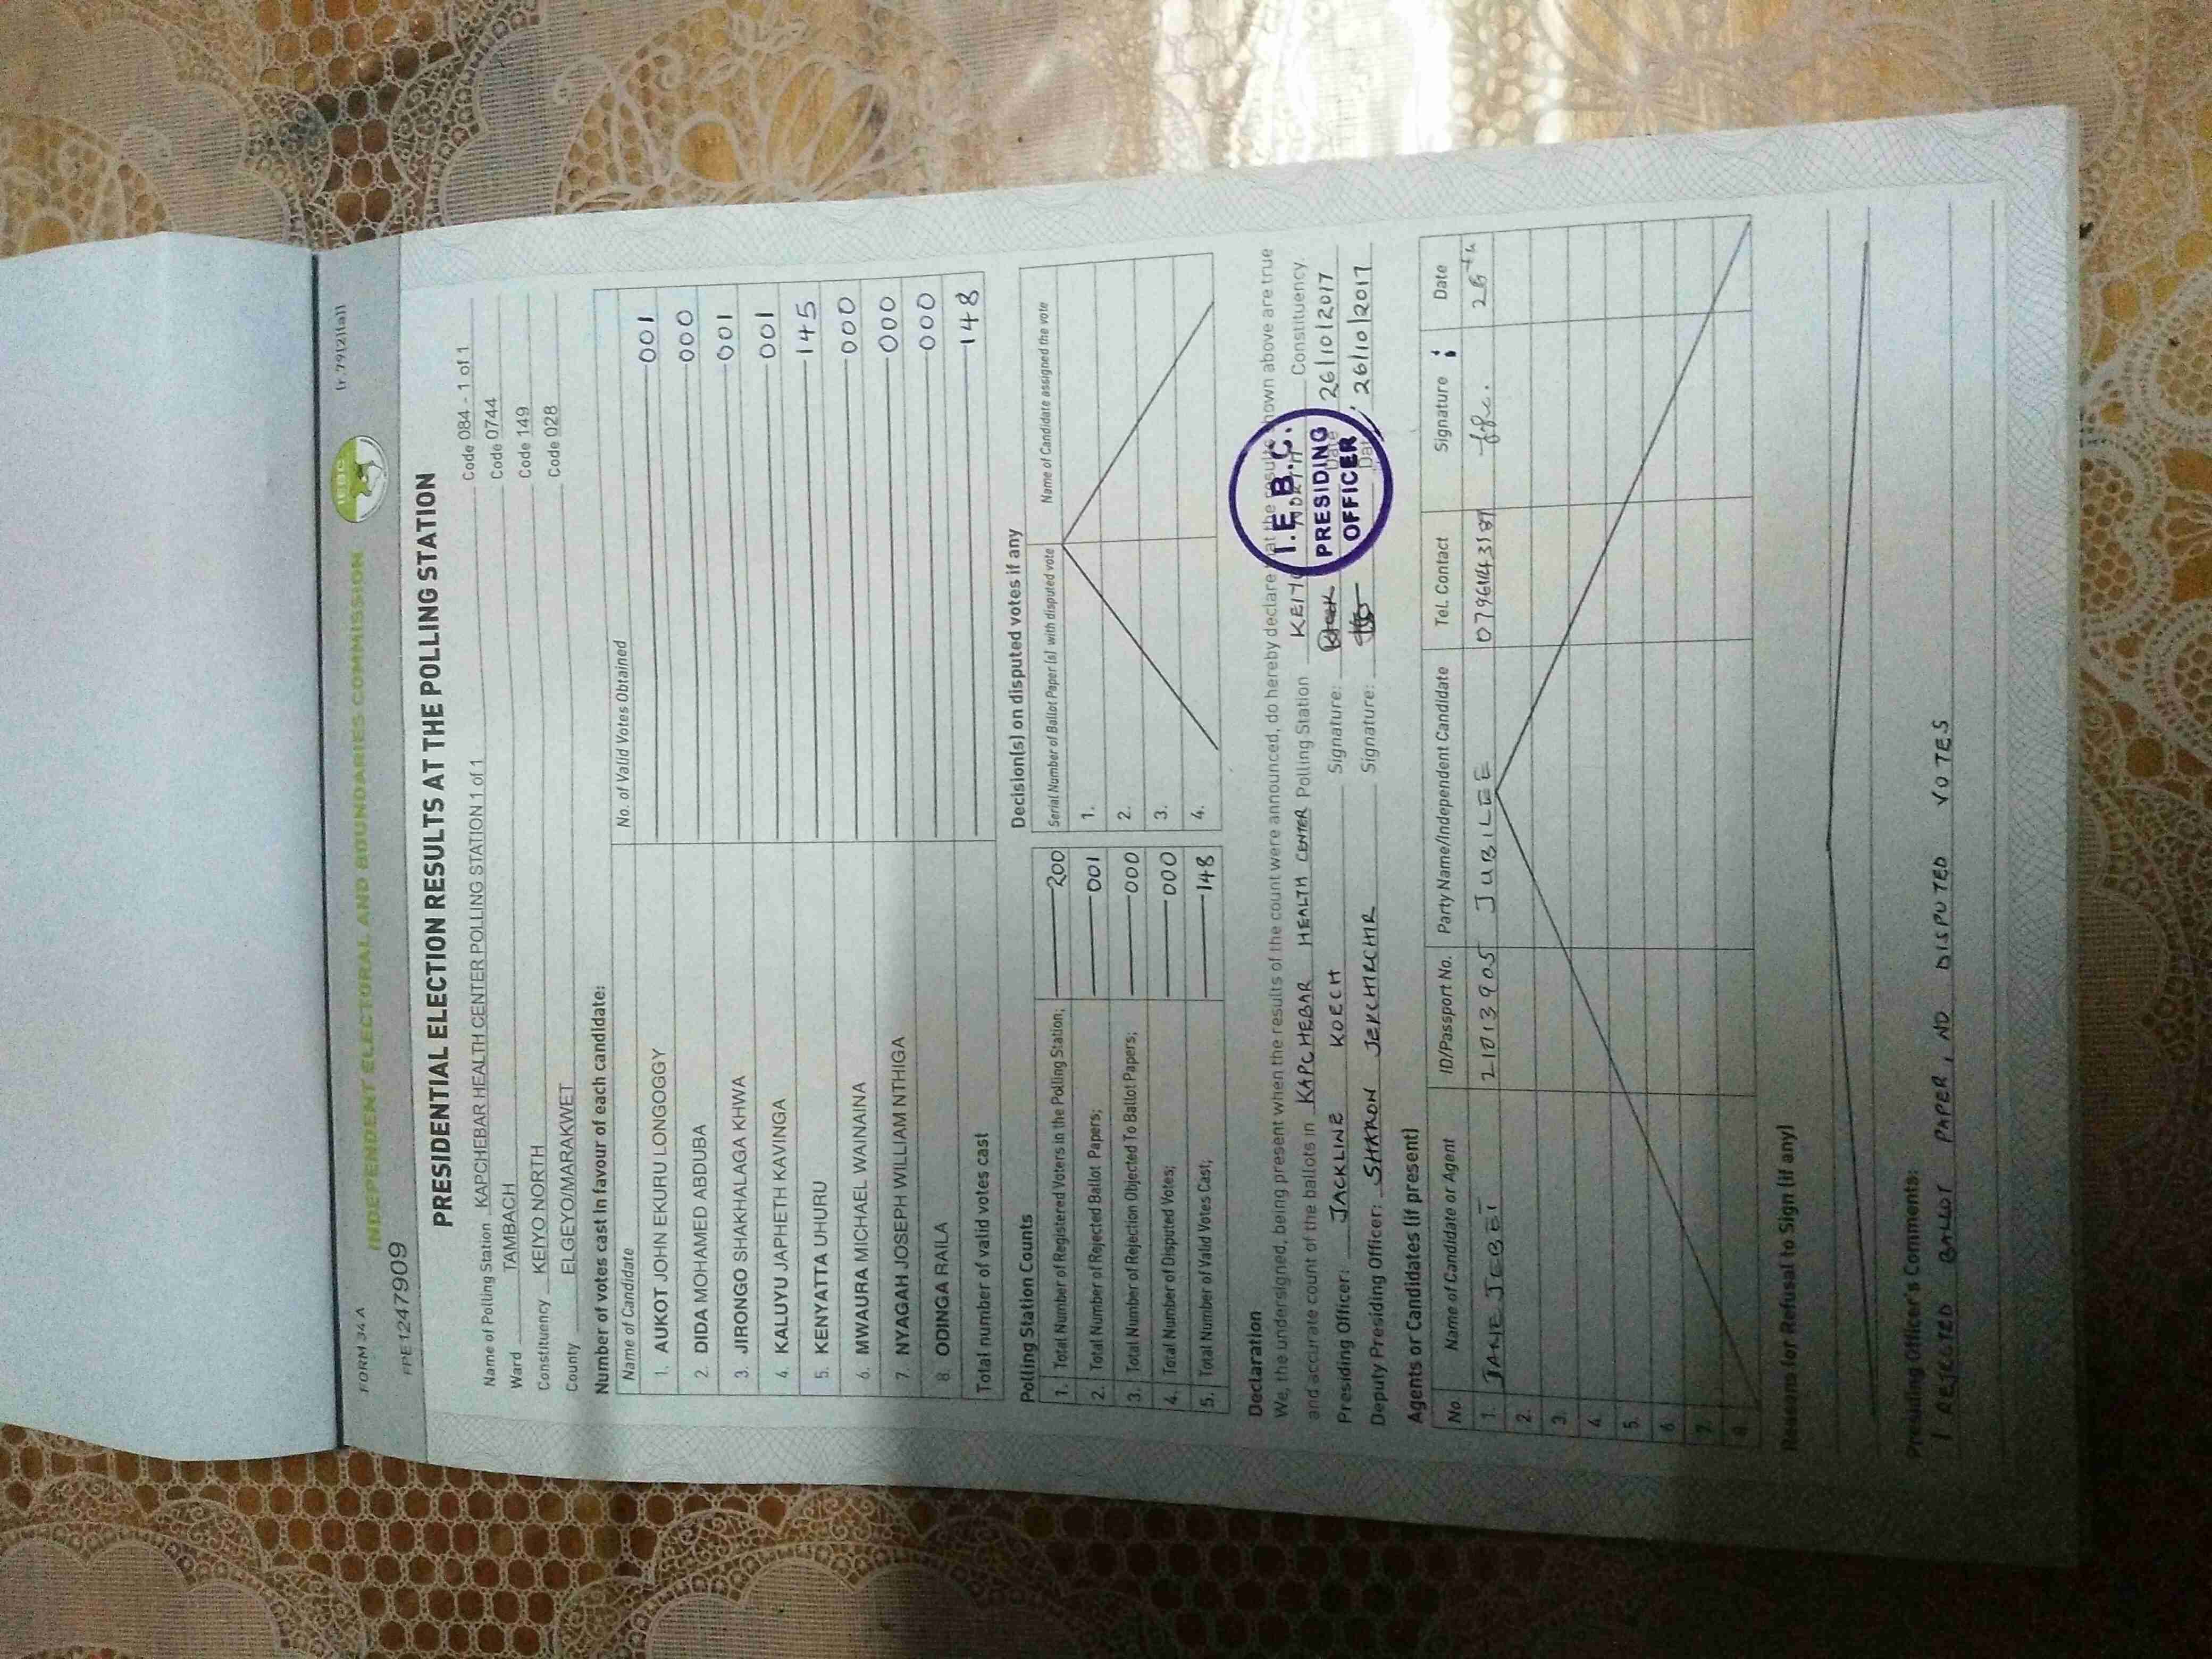 FORM 34 A
INDEPENDENT ELECTORAL AND BOUNDARIES COMMISSION
IEBC
FPE1247909
PRESIDENTIAL ELECTION RESULTS AT THE POLLING STATION
Name of Polling Station KAPCHEBAR HEALTH CENTER POLLING STATION 1 of 1 Code 084 - 1 of 1
Ward TAMBACH Code 0744
Constituency KEIYO NORTH Code 149
County ELGEYO/MARAKWET Code 028
Number of votes cast in favour of each candidate:
Name of Candidate No. of Valid Votes Obtained
1. AUKOT JOHN EKURU LONGOGGY 001
2. DIDA MOHAMED ABDUBA 000
3. JIRONGO SHAKHALAGA KHWA 001
4. KALUYU JAPHETH KAVINGA 001
5. KENYATTA UHURU 145
6. MWAURA MICHAEL WAINAINA 000
7. NYAGAH JOSEPH WILLIAM NTHIGA 000
8. ODINGA RAILA 000
Total number of valid votes cast 148
Polling Station Counts
1. Total Number of Registered Voters in the Polling Station; 200
2. Total Number of Rejected Ballot Papers; 001
3. Total Number of Rejection Objected To Ballot Papers; 000
4. Total Number of Disputed Votes; 000
5. Total Number of Valid Votes Cast; 148
Decision(s) on disputed votes if any
Serial Number of Ballot Paper(s) with disputed vote Name of Candidate assigned the vote
1.
2.
3.
4.
Declaration
We, the undersigned, being present when the results of the count were announced, do hereby declare that the results shown above are true
and accurate count of the ballots in KAPCHEBAR HEALTH CENTER Polling Station KEIYO NORTH Constituency.
Presiding Officer: JACKLINE KOECH Signature: Date 26/10/2017
Deputy Presiding Officer: SHARON JERCHIRCHIR Signature: Date 26/10/2017
I.E.B.C.
PRESIDING
OFFICER
Agents or Candidates (if present)
No Name of Candidate or Agent ID/Passport No. Party Name/Independent Candidate Tel. Contact Signature Date
1. JANE JEBET 21013905 JUBILEE 26th
2.
3.
4.
5.
6.
7.
8.
Reasons for Refusal to Sign (if any)
Presiding Officer's Comments:
1 REJECTED BALLOT PAPER, NO DISPUTED VOTES